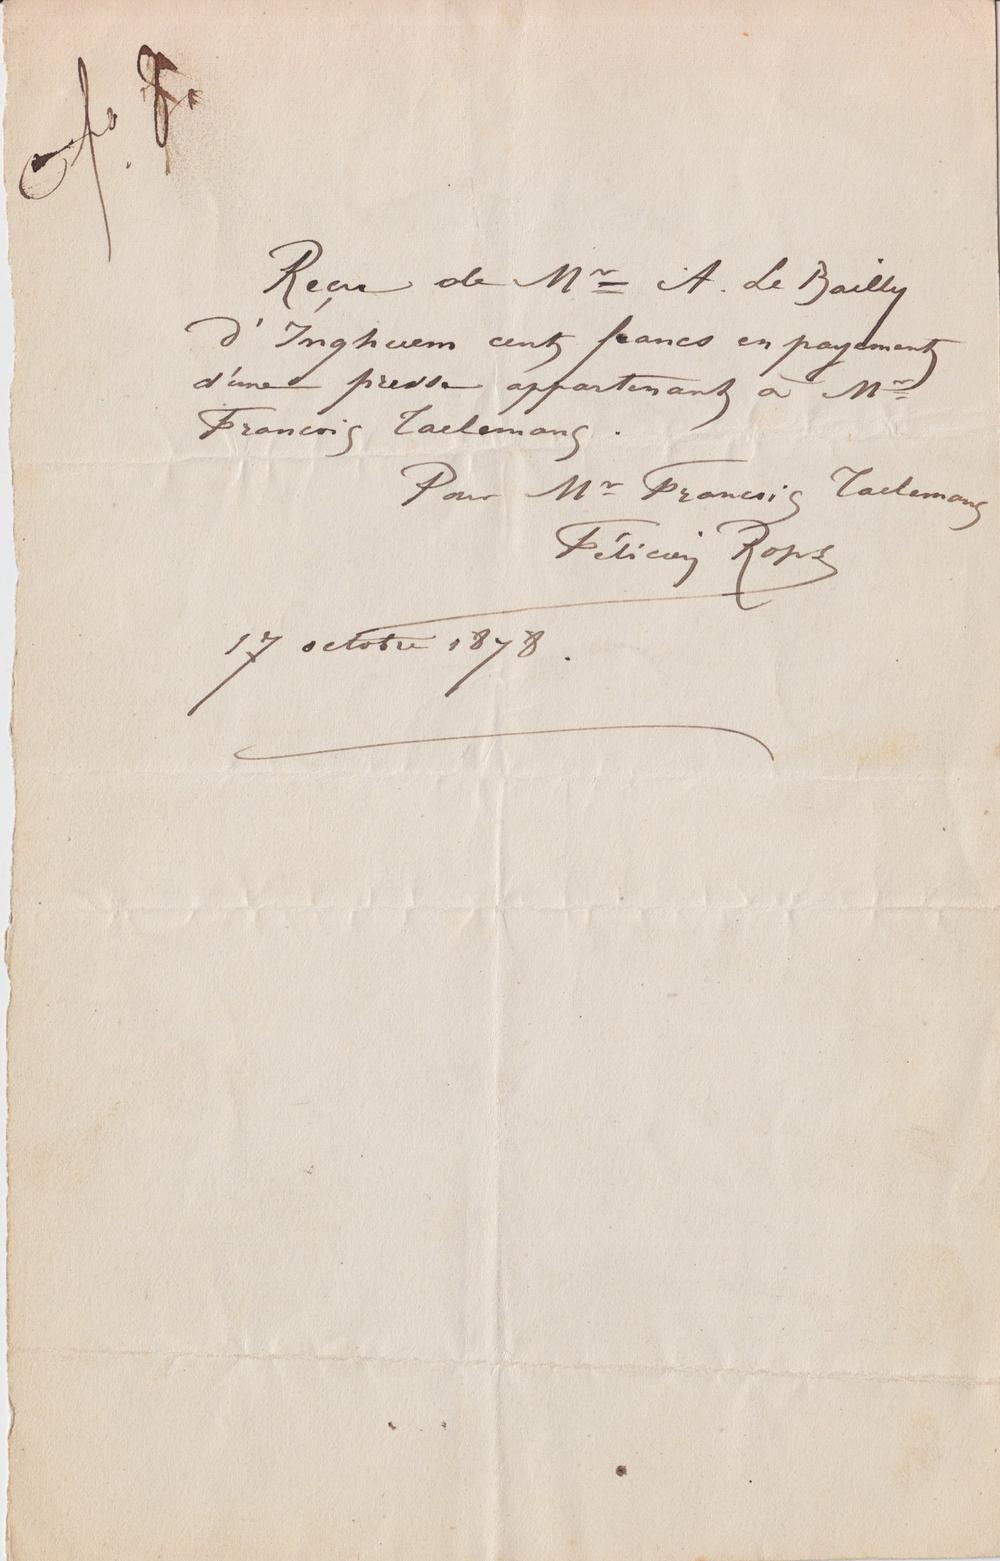 Reçu de Mr A. Le Bailly
d'Inghuem cent francs en payement
d'une presse appartenant à Mr
François Taelemans.
Pour Mr François Taelemans
Félicien Rops
17 octobre 1878.